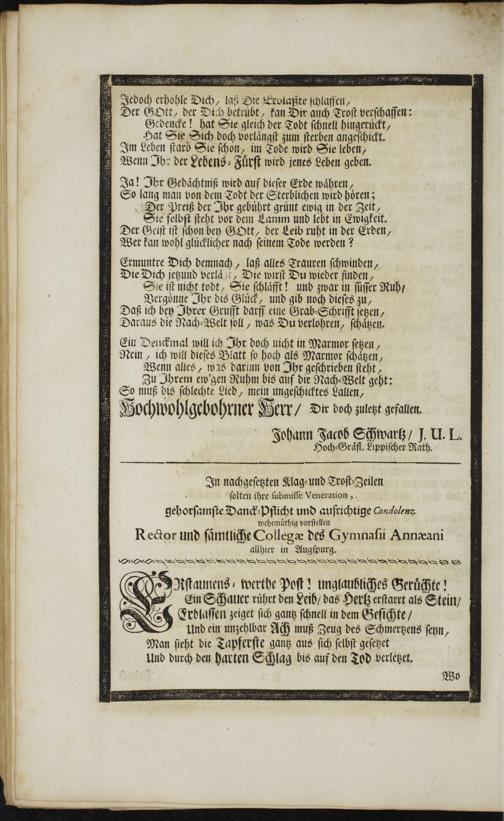 Jedoch erhohle Dich, laß Die Erblaßte schlaffen,
Der GOtt, der Dich betrübt, kan Dir auch Trost verschaffen:
Gedencke! hat Sie gleich der Todt schnell hingerückt,
Hat Sie Sich doch vorlängst zum sterben angeschickt.
Im Leben starb Sie schon, im Tode wird Sie leben,
Wenn Ihr der Lebens-Fürst wird jenes Leben geben.
Ja! Ihr Gedächtniß wird auf dieser Erde währen,
So lang man von dem Todt der Sterblichen wird hören;
Der Preiß der Ihr gebührt grünt ewig in der Zeit,
Sie selbst steht vor dem Lamm und lebt in Ewigkeit.
Der Geist ist schon bey GOtt, der Leib ruht in der Erden,
Wer kan wohl glücklicher nach seinem Tode werden?
Ermuntre Dich demnach, laß alles Trauren schwinden,
Die Dich jetzund verläßt, Die wirst Du wieder finden,
Sie ist nicht todt, Sie schläfft! und zwar in süsser Ruh,
Vergönne Ihr dis Glück, und gib noch dieses zu,
Daß ich bey Ihrer Grufft darff eine Grab-Schrifft setzen,
Daraus die Nach-Welt soll, was Du verlohren, schätzen.
Ein Denckmal will ich Ihr doch nicht in Marmor setzen,
Nein, ich will dieses Blatt so hoch als Marmor schätzen,
Wenn alles, was darinn von Ihr geschrieben steht,
Zu Ihrem ew'gen Ruhm bis auf die Nach-Welt geht:
So muß dis schlechte Lied, mein ungeschicktes Lallen,
Hochwohlgebohrner Herr/ Dir doch zuletzt gefallen.
Johann Jacob Schwartz/ J. U. L.
Hoch-Gräfl. Lippischer Rath.
In nachgesetzten Klag- und Trost-Zeilen
solten ihre submisse Veneration,
gehorsamste Danck-Pflicht und aufrichtige Condolenz
wehemüthig vorstellen
Rector und sämtliche Collegæ des Gymnasii Annæani
allhier in Augspurg.
ERstaunens-werthe Post! unglaubliches Gerüchte!
Ein Schauer rührt den Leib/ das Hertz erstarrt als Stein/
Erblassen zeiget sich gantz schnell in dem Gesichte/
Und ein unzehlbar Ach muß Zeug des Schmertzens seyn,
Man sieht die Tapferste gantz aus sich selbst gesetzt
Und durch den harten Schlag bis auf den Tod verletzet.
Wo